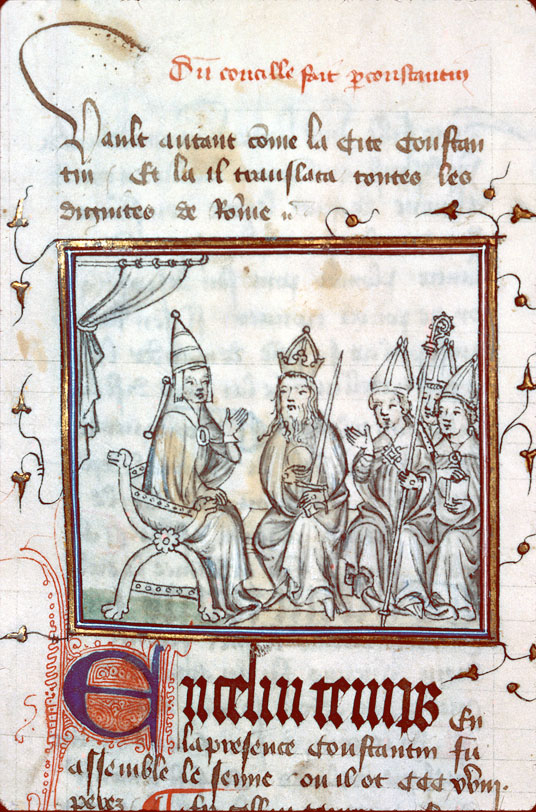 Du concille fait p constantin
Vault autant cōme la Cite Constan
tin Et la il translata toutes les
dignites de Rōme
En celui temps En
la presence Constantin fu
assemble le senne ou il ot CCC xviii.